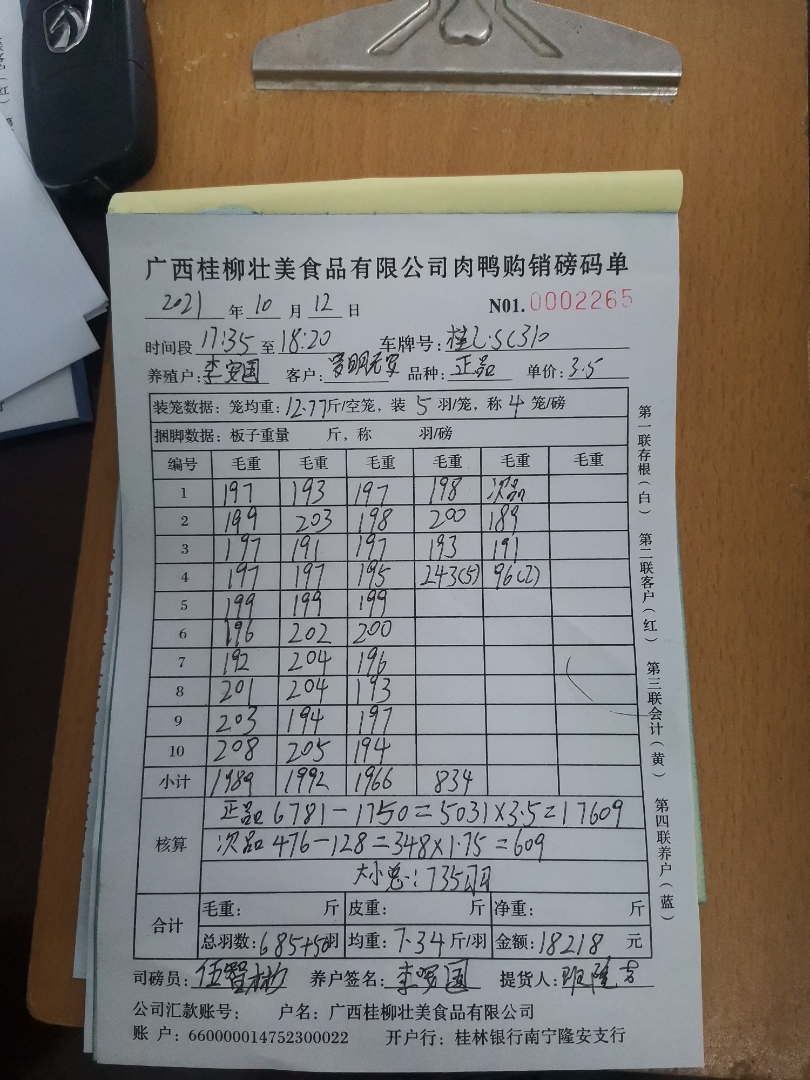 广西桂柳壮美食品有限公司肉鸭购销磅码单
2021 年 10 月 12 日 N01. 0002265
时间段 17:35 至 18:20 车牌号: 桂L·SC310
养殖户: 李安国 客户: 品种: 正品 单价: 3.5
装笼数据: 笼均重: 12.77斤/空笼, 装 5 羽/笼, 称 4 笼/磅
捆脚数据: 板子重量 斤, 称 羽/磅
编号 毛重 毛重 毛重 毛重 毛重 毛重
1 197 193 197 198 次品
2 199 203 198 200 189
3 197 191 197 193 191
4 197 197 195 243(5) 96(2)
5 199 199 199
6 196 202 200
7 192 204 196
8 201 204 193
9 203 194 197
10 208 205 194
小计 1989 1992 1966 834
核算
正品 6781-1750=5031×3.5=17609
次品 476-128=348×1.75=609
大小总:735羽
合计
毛重: 斤 皮重: 斤 净重: 斤
总羽数: 685+50羽 均重: 7.34 斤/羽 金额: 18218 元
司磅员: 伍智彬 养户签名: 李安国 提货人:
公司汇款账号: 户名: 广西桂柳壮美食品有限公司
账 户: 660000014752300022 开户行: 桂林银行南宁隆安支行
第一联存根(白) 第二联客户(红) 第三联会计(黄) 第四联养户(蓝)